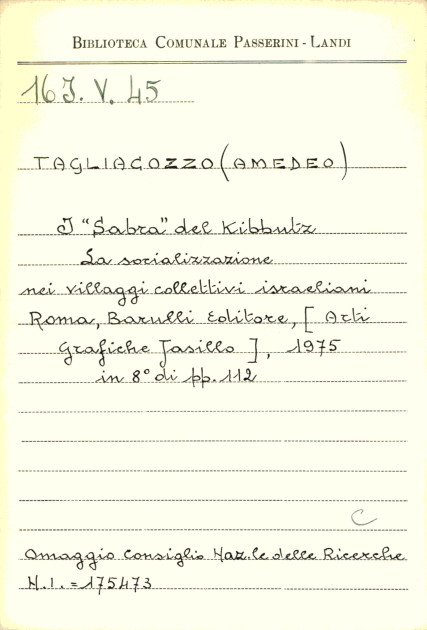 BIBLIOTECA COMUNALE PASSERINI - LANDI
16 J. V. 45
TAGLIACOZZO (AMEDEO)
I "Sabra" del Kibbutz
La socializzazione
nei villaggi collettivi israeliani
Roma, Barulli Editore, [Arti
Grafiche Jasillo], 1975
in 8° di pp. 112
C
Omaggio Consiglio Naz.le delle Ricerche
N.I. = 175473